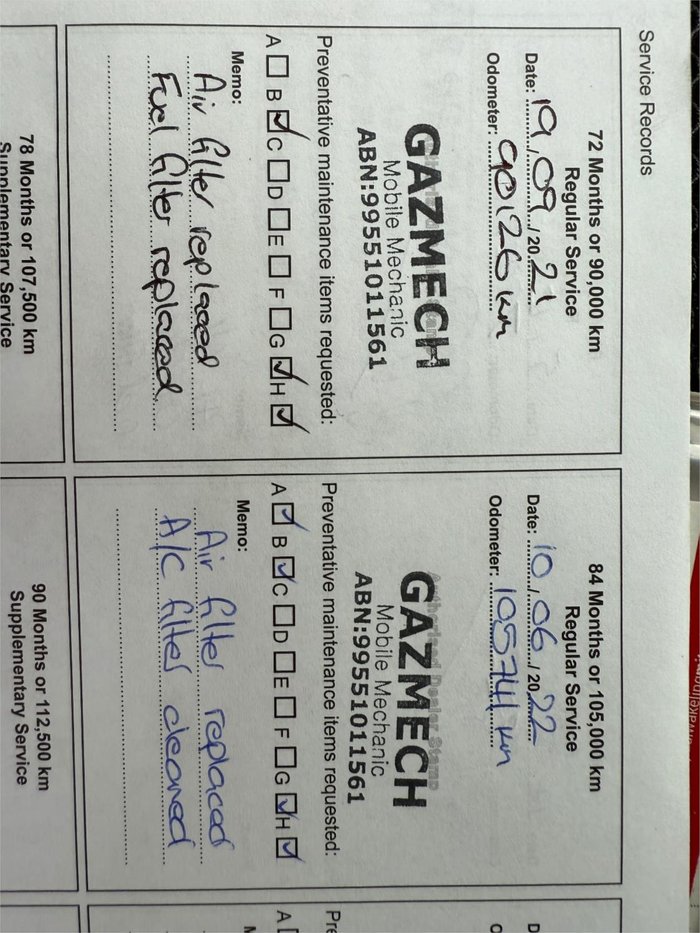 Service Records
72 Months or 90,000 km
Regular Service
Date: 19/09/2021
Odometer: 90126 km
GAZMECH
Mobile Mechanic
ABN:99551011561
Preventative maintenance items requested:
A B C D E F G H
Memo:
Air filter replaced
Fuel filter replaced
84 Months or 105,000 km
Regular Service
Date: 10/06/2022
Odometer: 105741 km
Authorised Dealer Stamp
GAZMECH
Mobile Mechanic
ABN:99551011561
Preventative maintenance items requested:
A B C D E F G H
Memo:
Air filter replaced
A/C filter cleaned
78 Months or 107,500 km
Supplementary Service
90 Months or 112,500 km
Supplementary Service